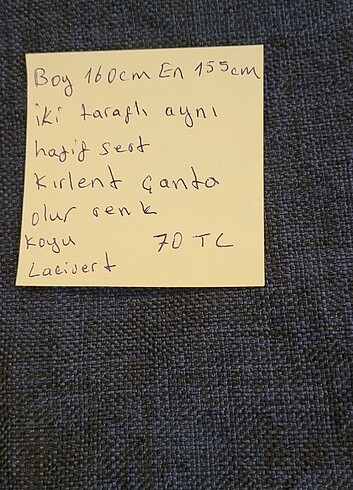 Boy 160cm En 155cm
iki taraflı aynı
hafif sert
Kırlent Çanta
olur renk
Koyu 70 TL
Lacivert